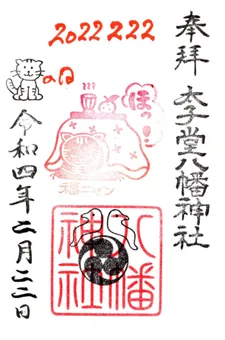 奉拝 太子堂八幡神社
2022222
の日
ほっ!
福ニャン
八幡神社
令和四年二月二二日